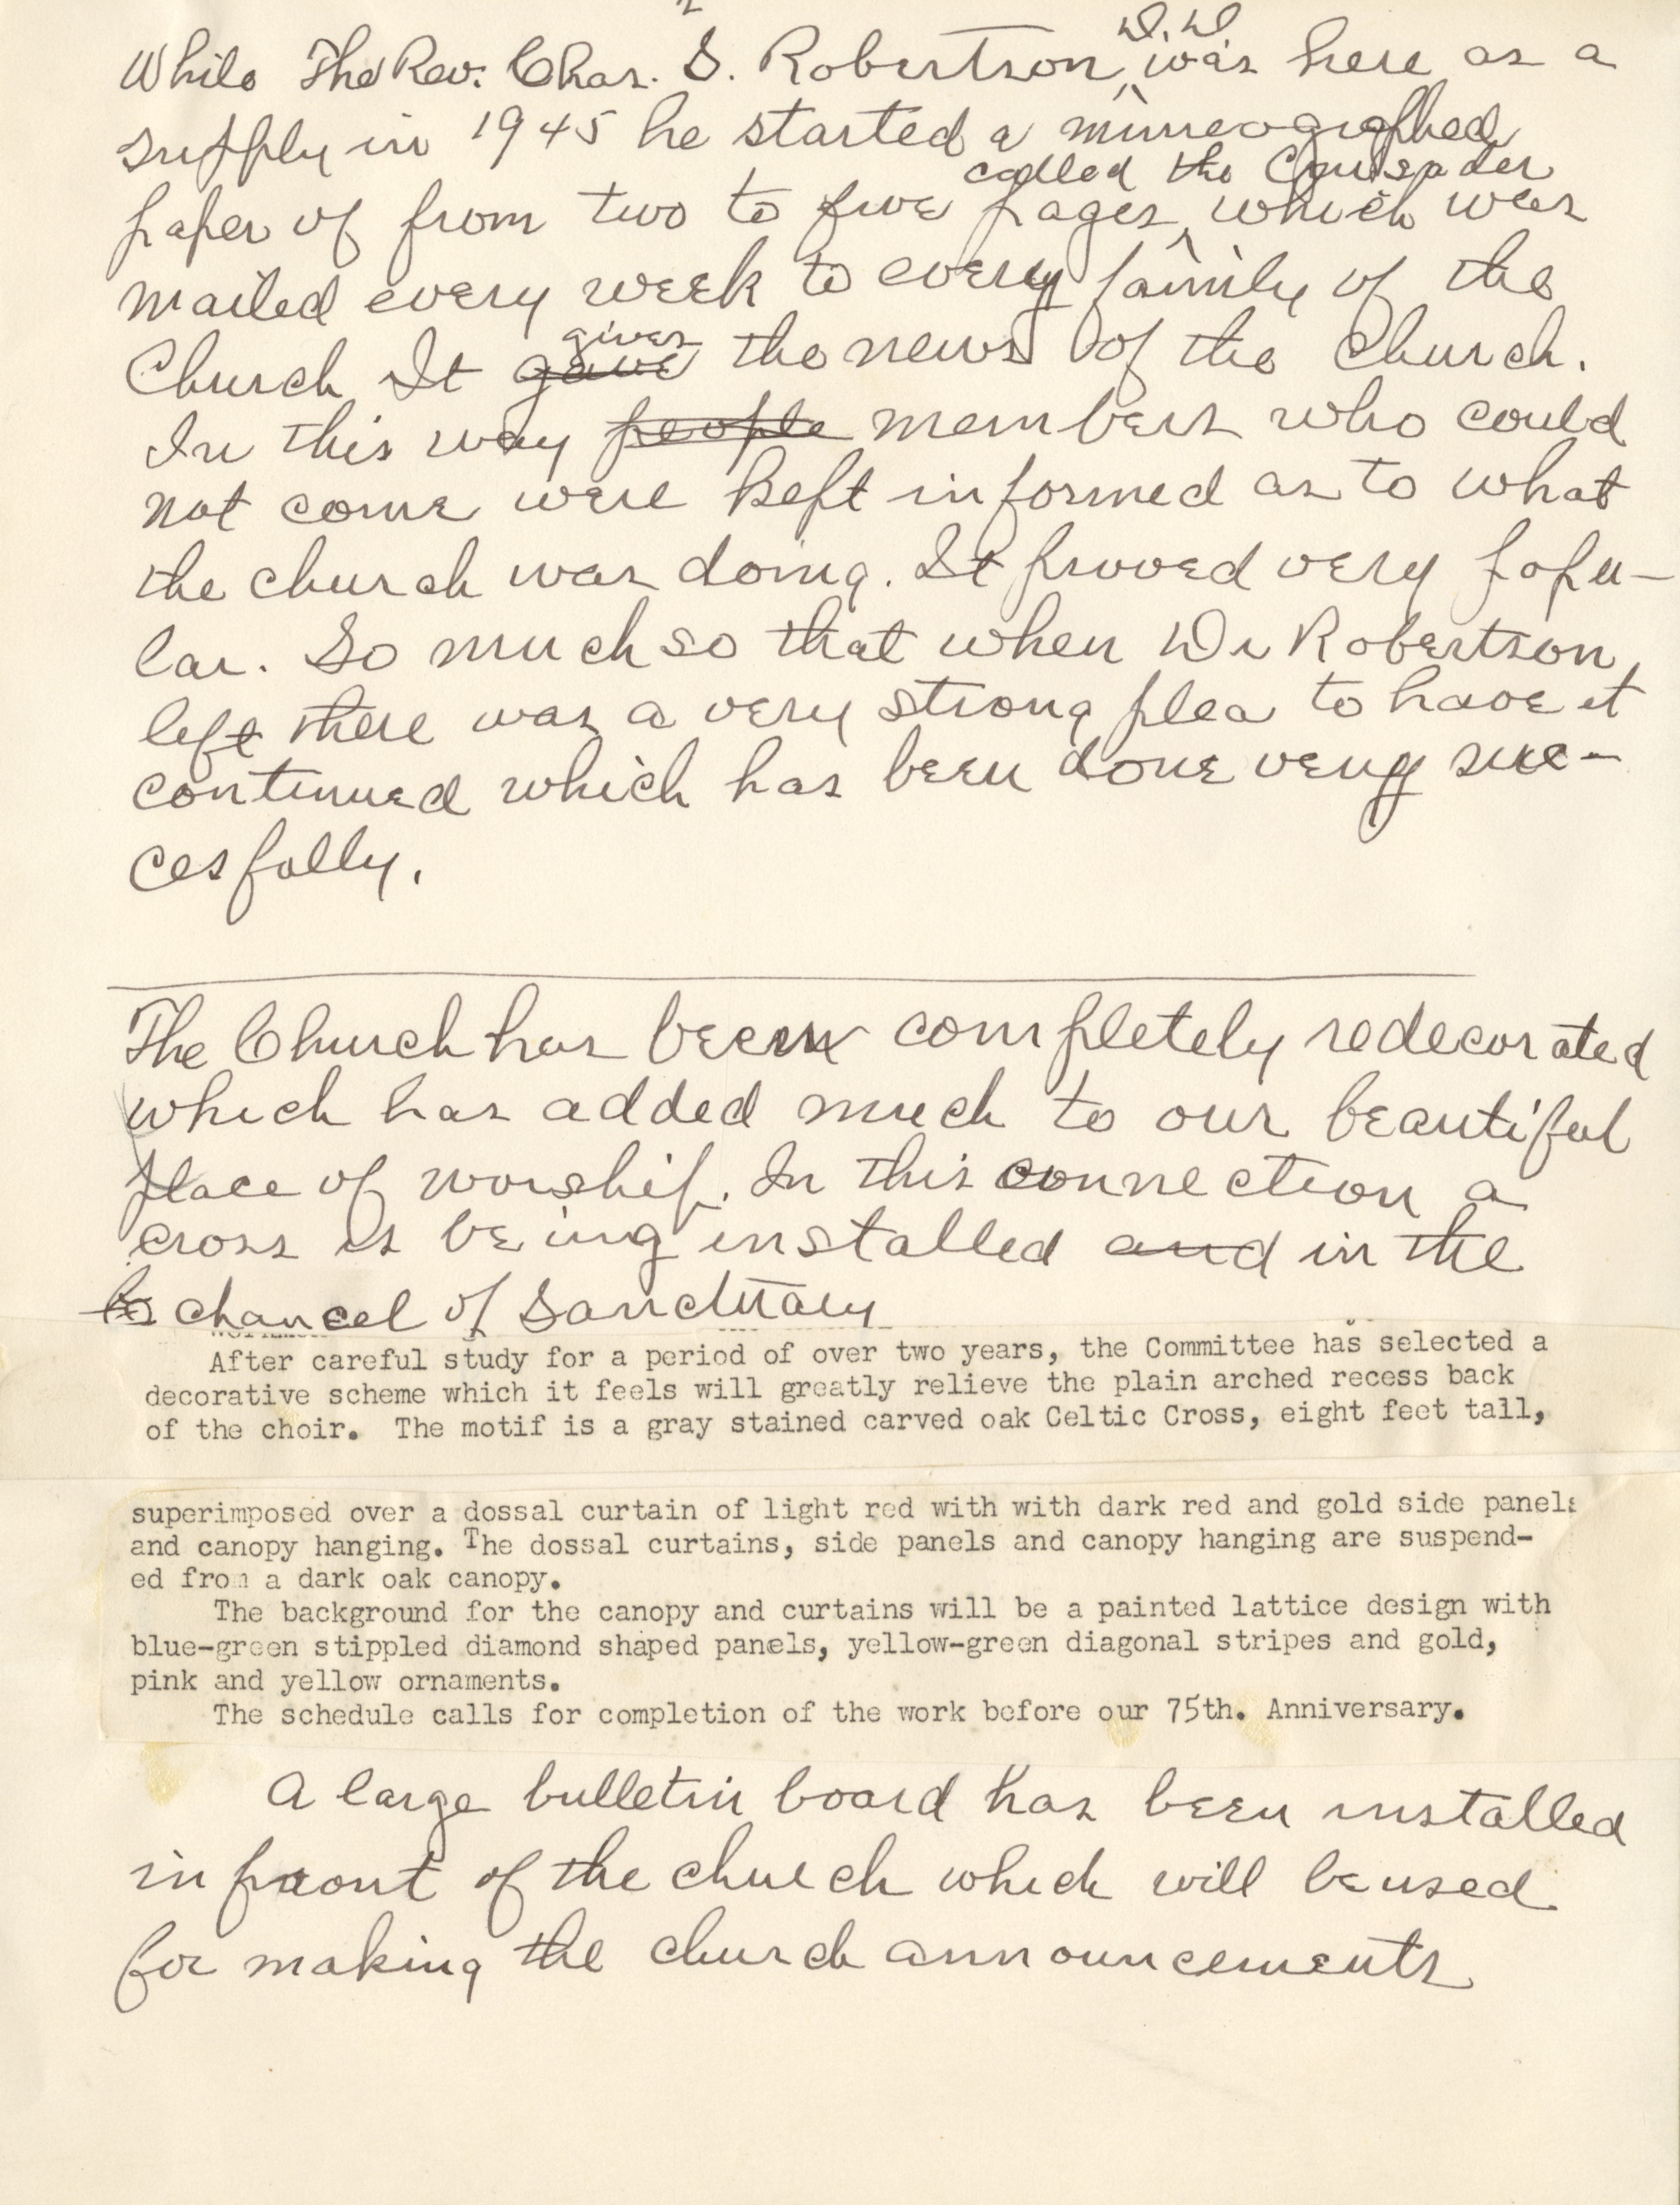 While The Rev. Chas. S. Robertson, D.D. was here as a
supply in 1945 he started a mimeographed
called the Crusader
paper of from two to five pages, which was
mailed every week to every family of the
gives
Church It gave the news of the church.
In this way people members who could
not come were kept informed as to what
the church was doing. It proved very popu-
lar. So much so that when Dr Robertson,
left there was a very strong plea to have it
continued which has been done very suc-
cesfully.
The Church has been completely redecorated
which has added much to our beautiful
place of worship. In this connection a
cross is being installed and in the
chancel of Sanctuary
After careful study for a period of over two years, the Committee has selected a
decorative scheme which it feels will greatly relieve the plain arched recess back
of the choir. The motif is a gray stained carved oak Celtic Cross, eight feet tall,
superimposed over a dossal curtain of light red with with dark red and gold side panels
and canopy hanging. The dossal curtains, side panels and canopy hanging are suspend-
ed from a dark oak canopy.
The background for the canopy and curtains will be a painted lattice design with
blue-green stippled diamond shaped panels, yellow-green diagonal stripes and gold,
pink and yellow ornaments.
The schedule calls for completion of the work before our 75th. Anniversary.
A large bulletin board has been installed
in front of the church which will be used
for making the church announcements